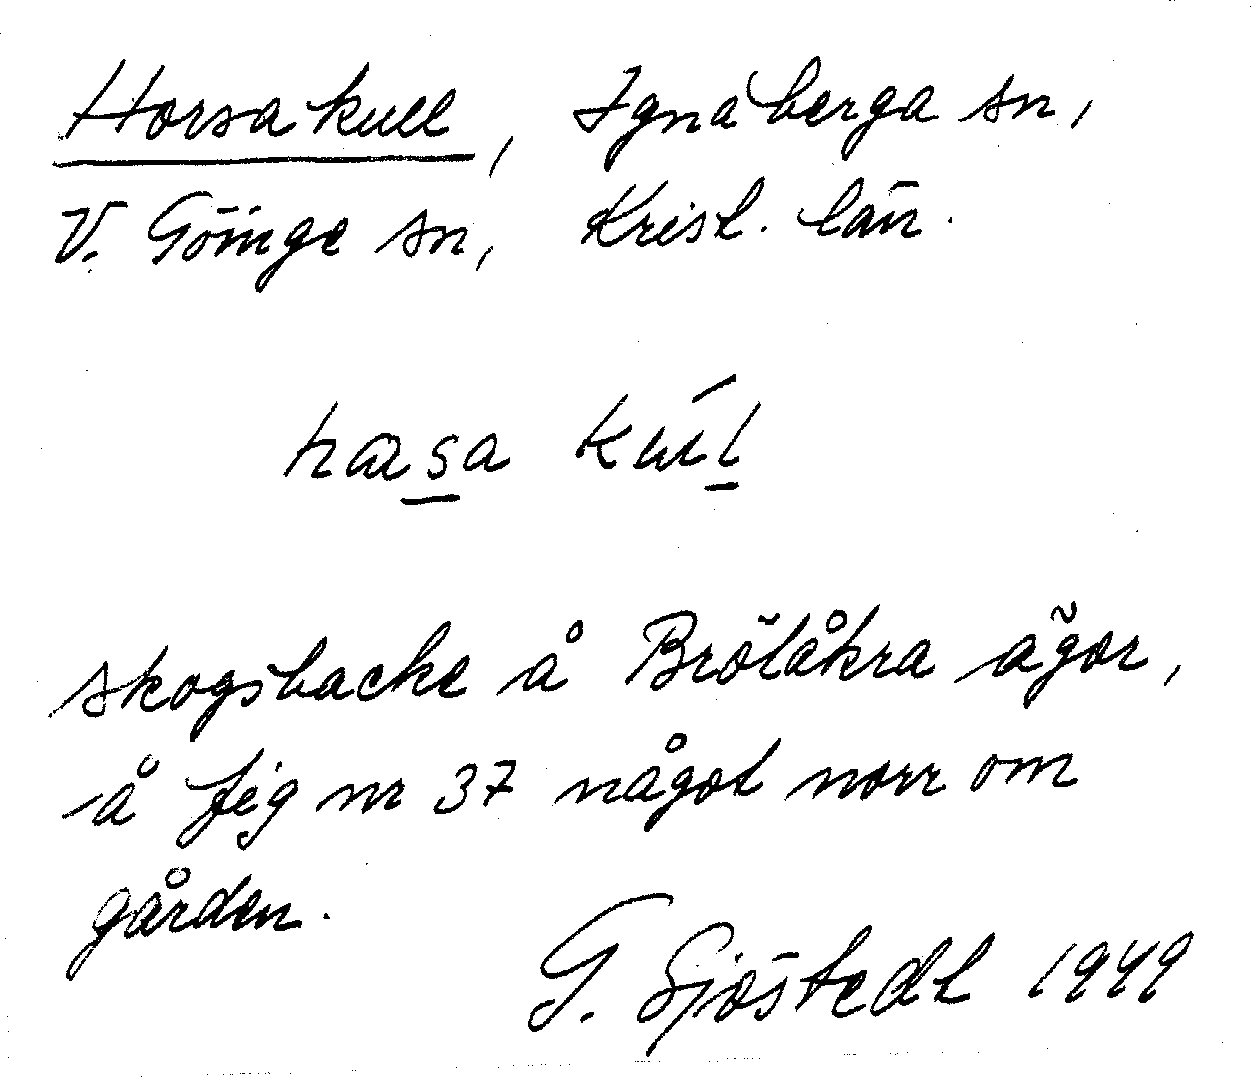 Horsakull, Ignaberga sn,
V. Göinge sn, Krist. län.
skogsbacke å Brölåkra ägor,
å fig nr 37 något norr om
gården.
G. Sjöstedt 1949